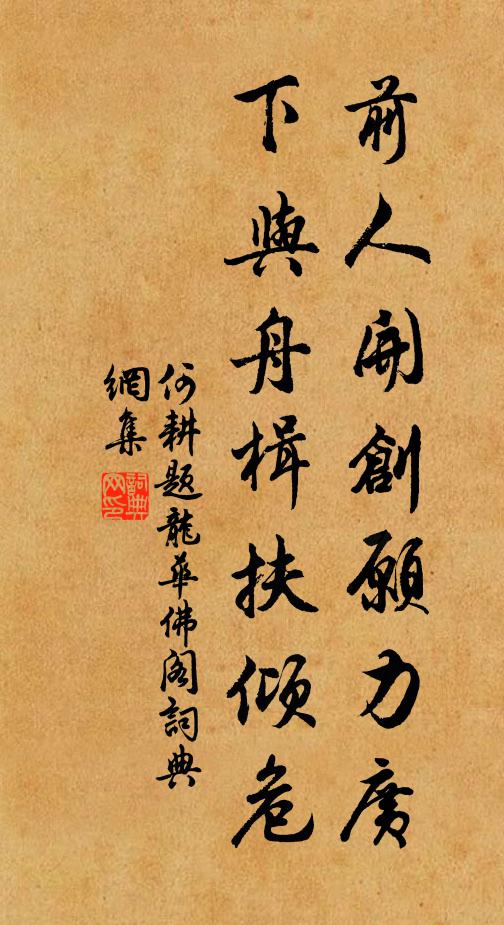 前人開創願力廣
下與舟楫扶傾危
何耕題龍華佛閣詞典
網集
詞典網印